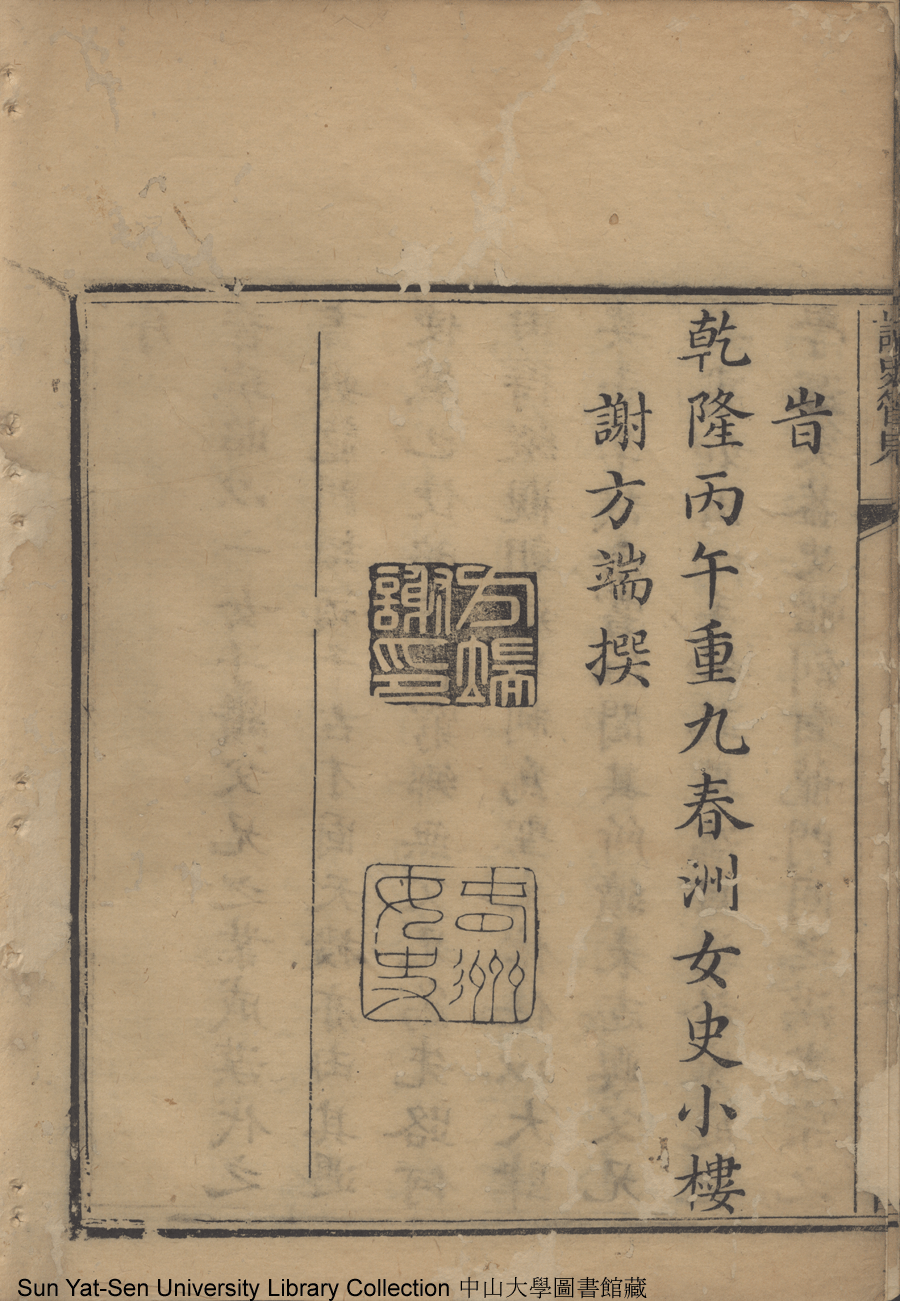 讀史管見
旹
乾隆丙午重九春洲女史小樓
謝方端撰
方端
謝印
春洲
女史
Sun Yat-Sen University Library Collection 中山大學圖書館藏